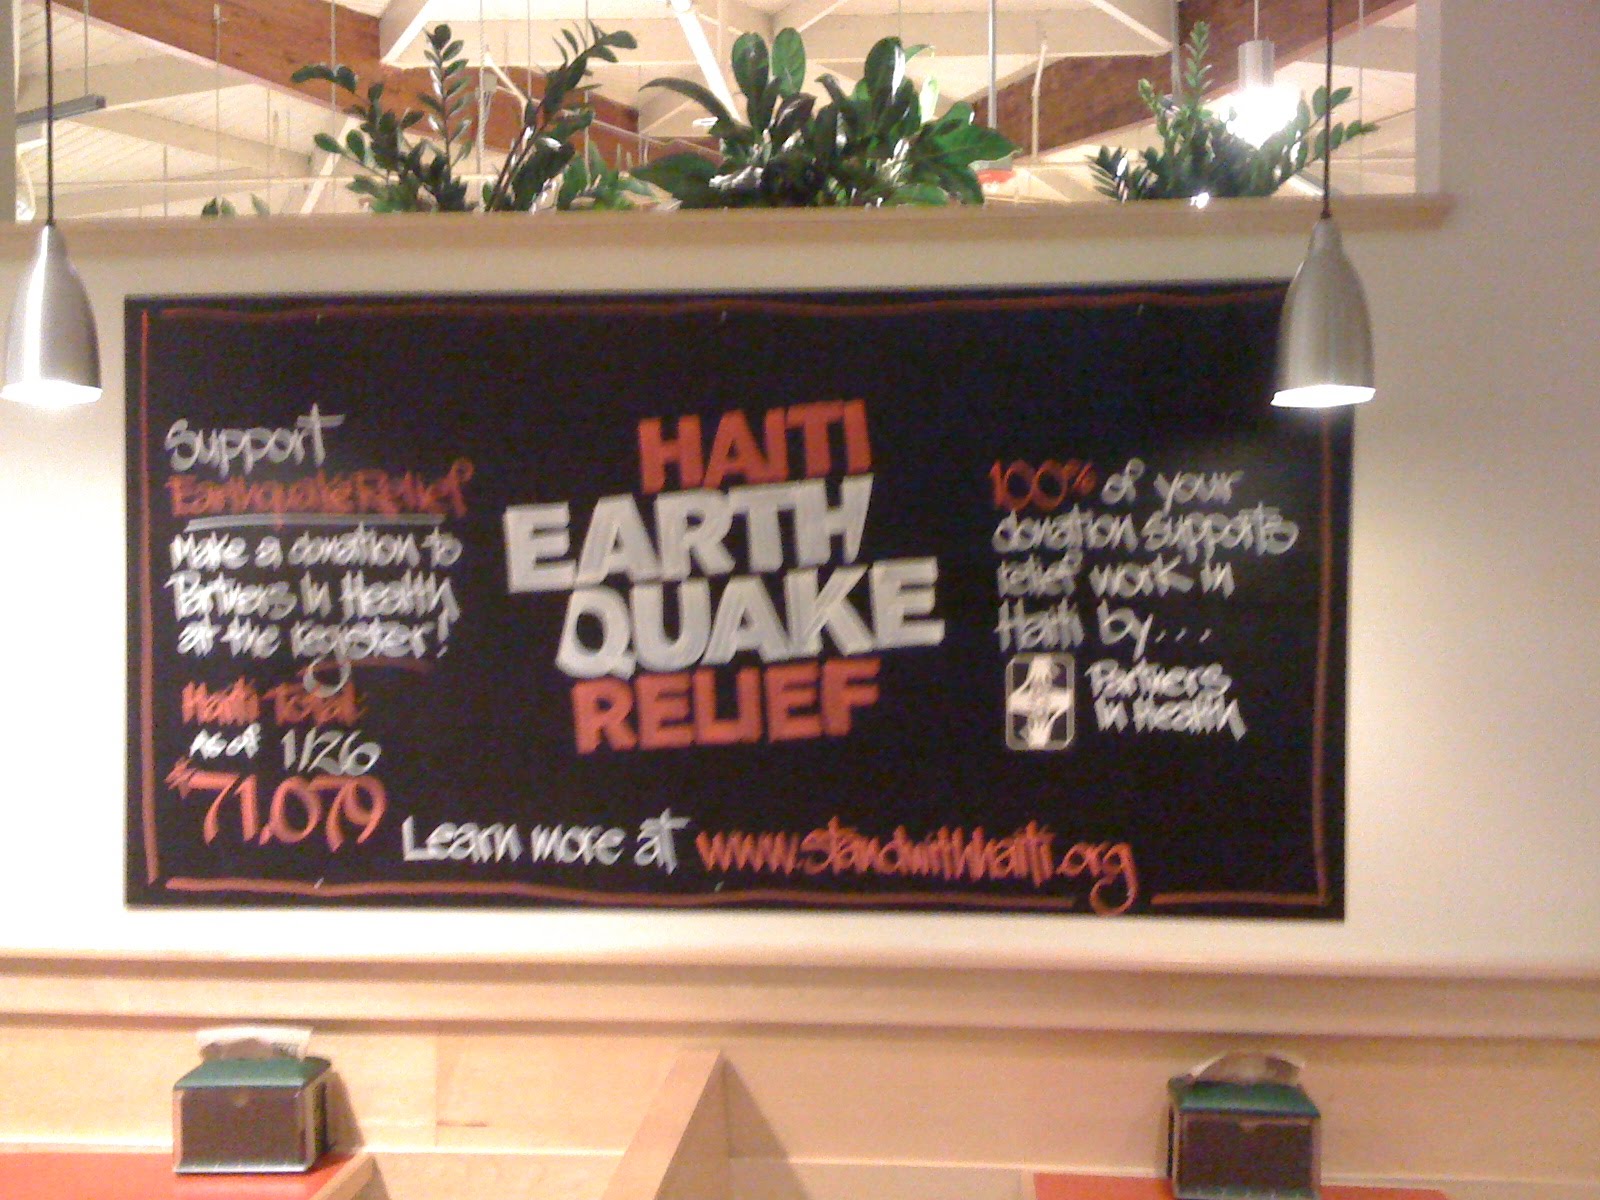 Support
Earthquake Relief
Make a donation to
Partners In Health
at the register!
Haiti Total
As of 1/26
$71,079
HAITI
EARTH
QUAKE
RELIEF
100% of your
donation supports
relief work in
Haiti by...
Partners
In Health
Learn more at www.standwithhaiti.org